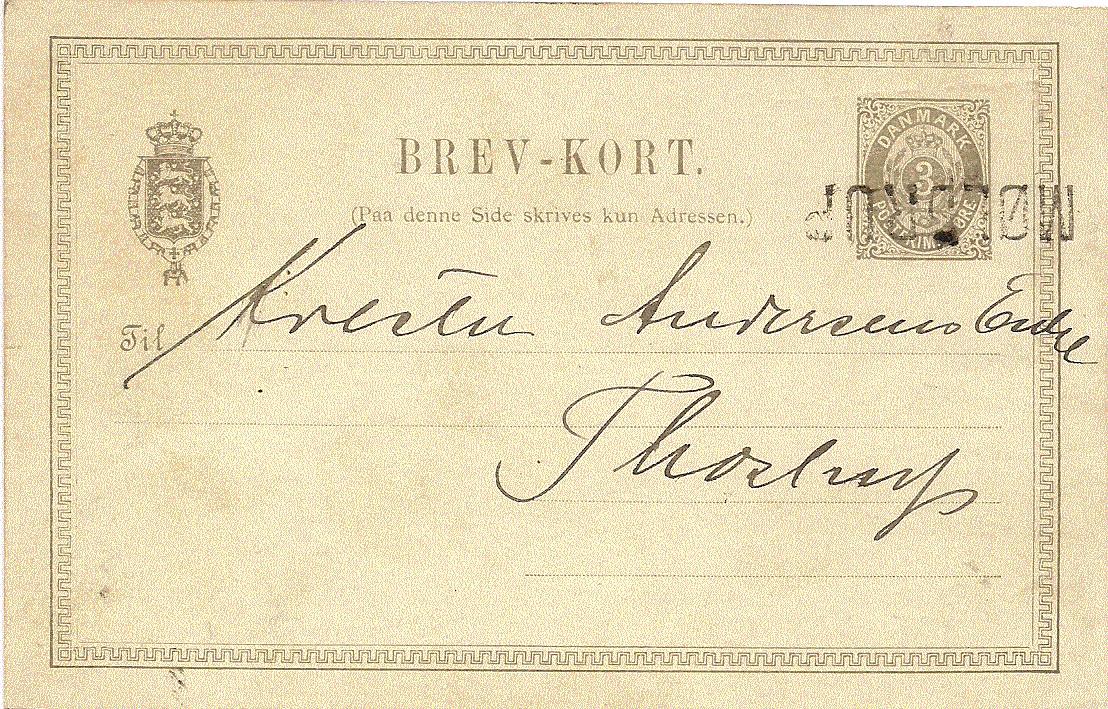 BREV-KORT.
(Paa denne Side skrives kun Adressen.)
DANMARK
3
POSTFRIM. ØRE
Til Kresten Andersens Enke
Thostrup